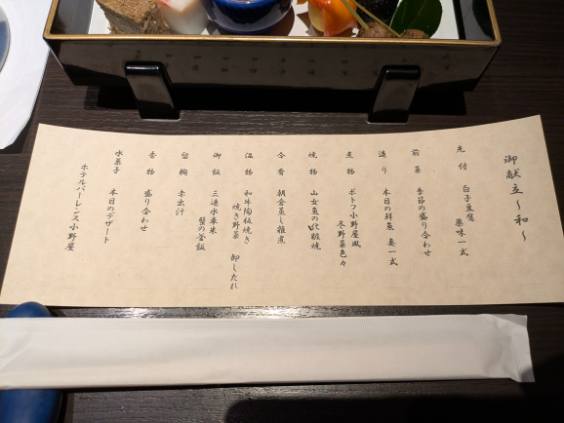 御献立～和～
先付 白子豆腐 薬味一式
前菜 季節の盛り合わせ
造り 本日の鮮魚 妻一式
煮物 ポトフ小野屋風
冬野菜色々
焼物 山女魚の
合肴 朝倉蒸し 椎煮
温物 和牛陶板焼き
焼き野菜 卸したれ
御飯 三連水車米
蟹の釜飯
留椀 赤出汁
香物 盛り合わせ
水菓子 本日のデザート
ホテルパーレンス小野屋